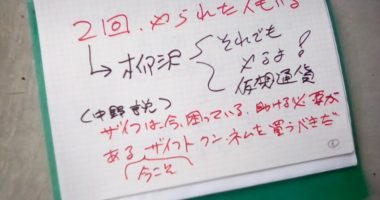 2回、やられた人もいる
↳ 柳沢 { それでも
やるよ!
仮想通貨
(中野説)
ザイフは、今、困っている。助ける必要が
ある。ザイフトークン、ネムを買うべきだ
今こそ